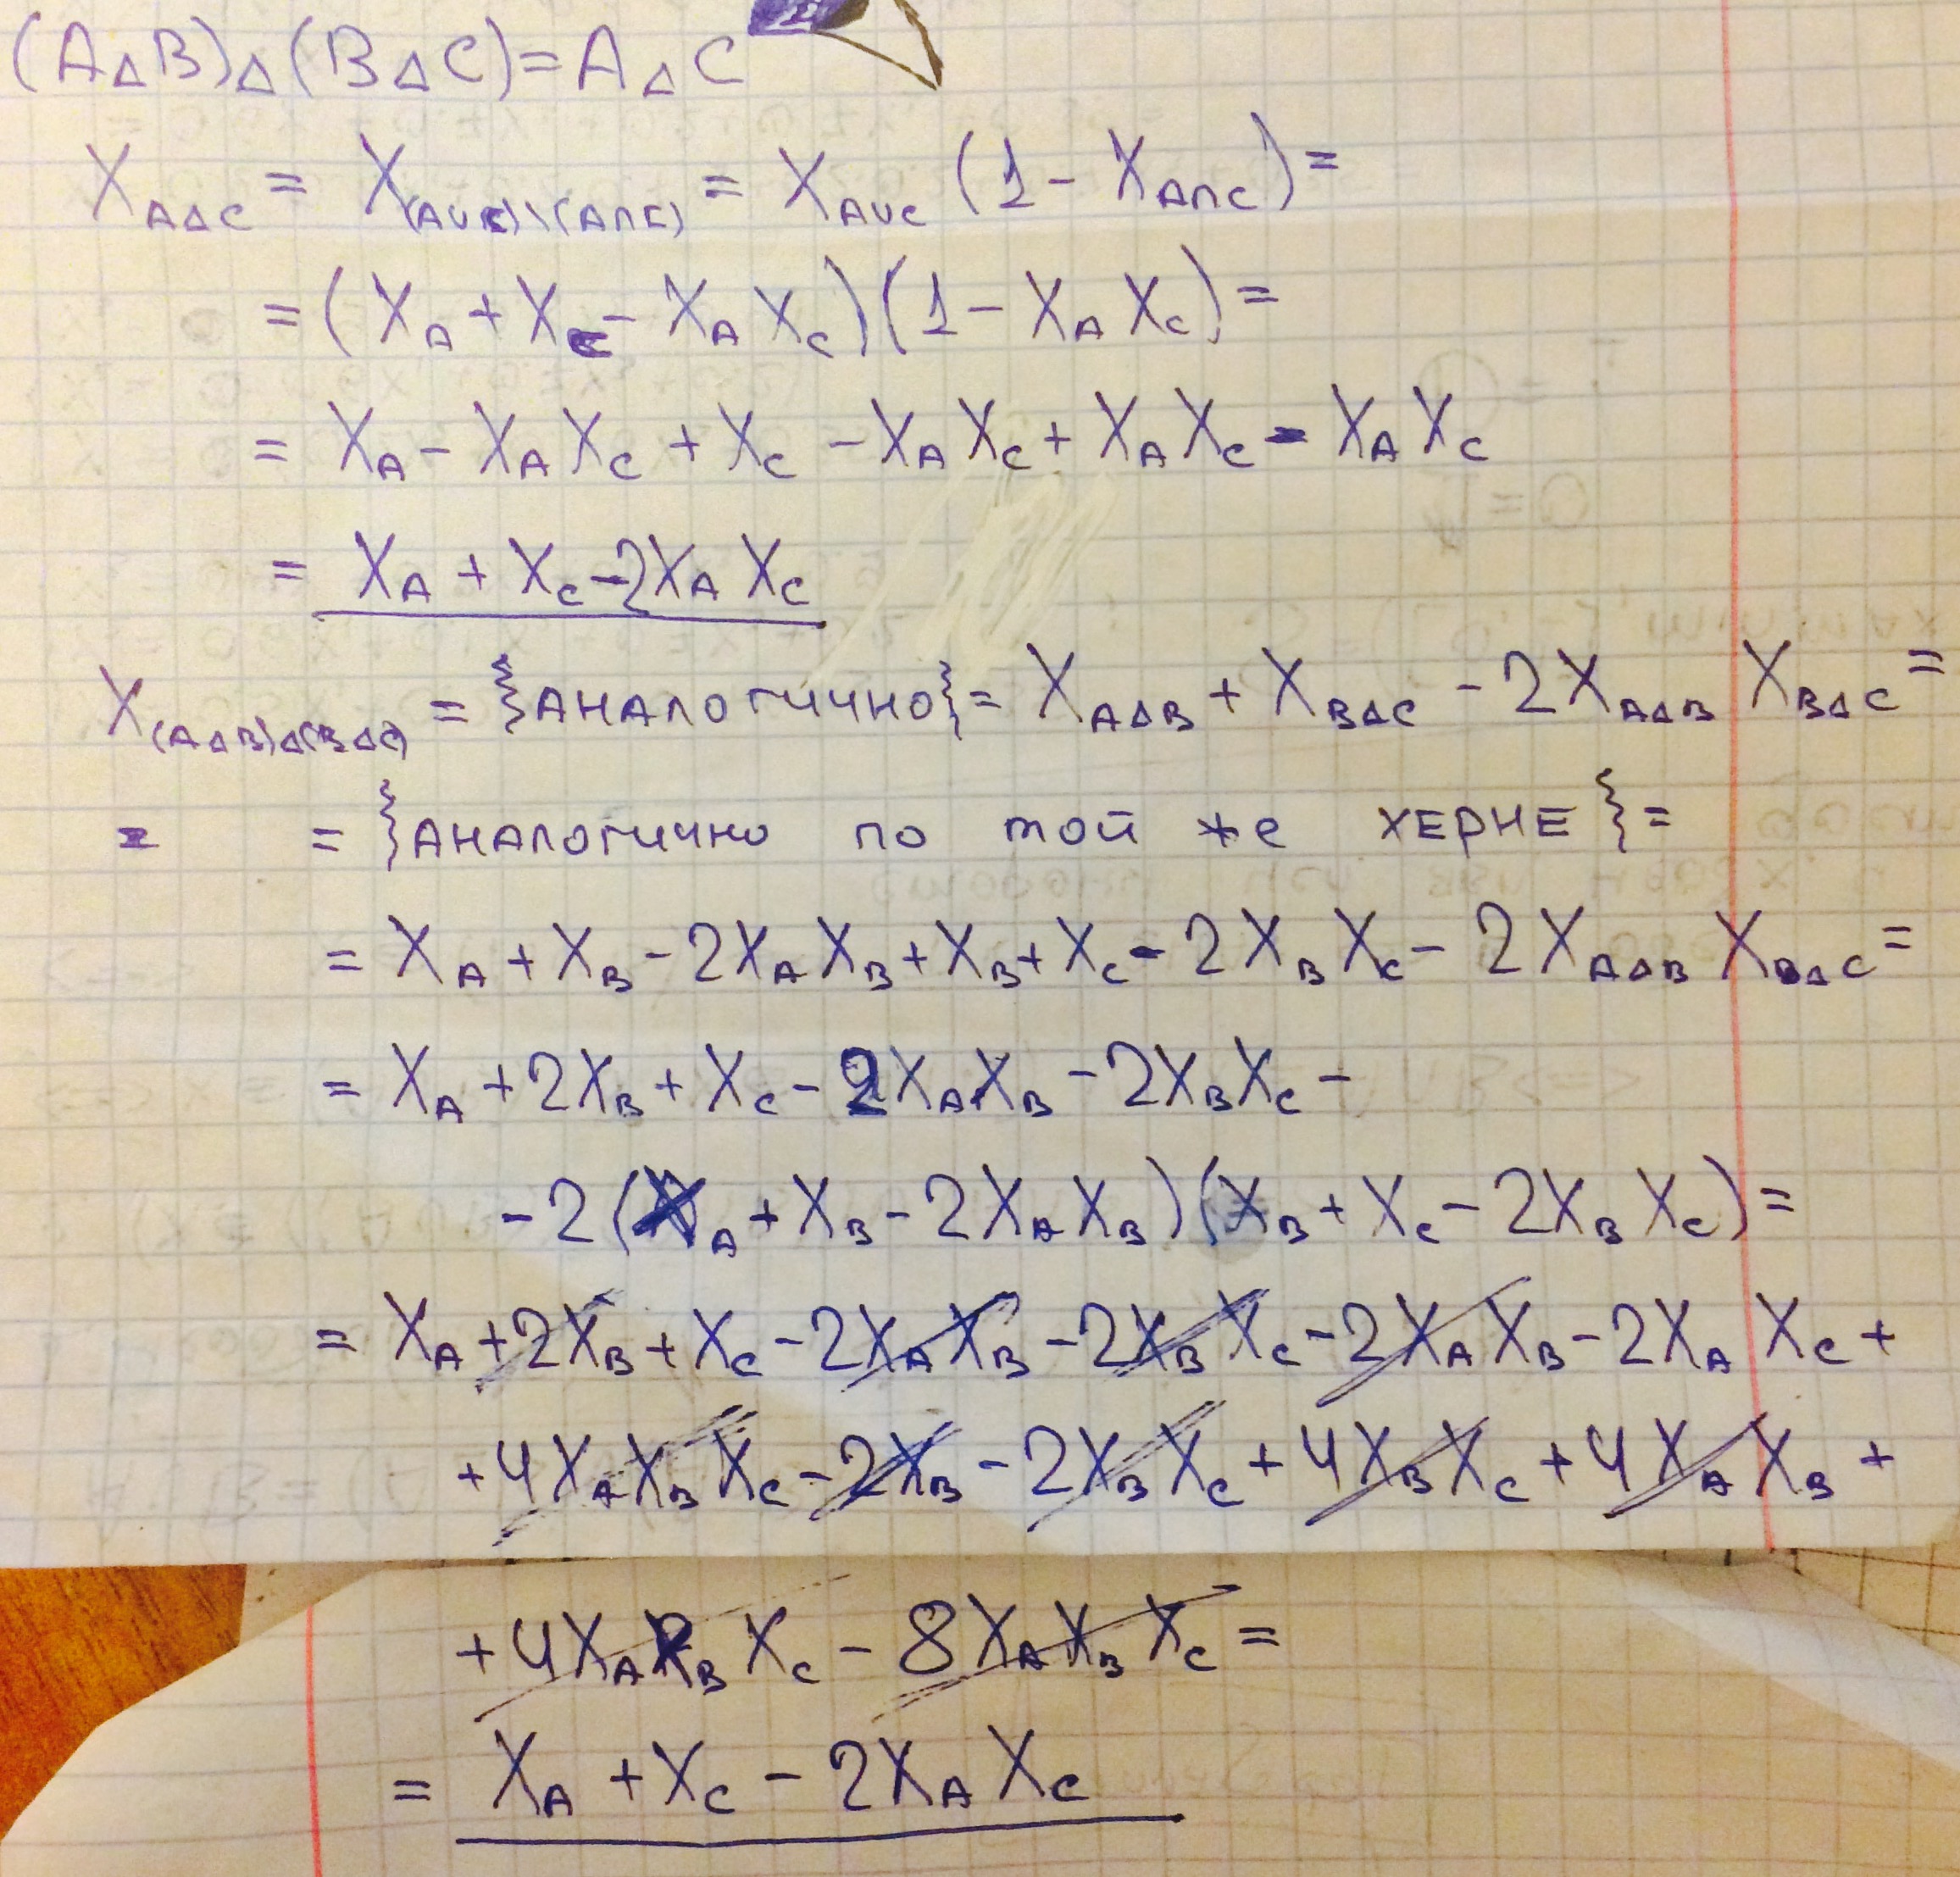 (A∆B)∆(B∆C)=A∆C
X_{A∆C} = X_{(A∪C)\(A∩C)} = X_{A∪C} (1 - X_{A∩C}) =
= (X_A + X_C - X_A X_C)(1 - X_A X_C) =
= X_A - X_A X_C + X_C - X_A X_C + X_A X_C - X_A X_C
= X_A + X_C - 2X_A X_C
X_{(A∆B)∆(B∆C)} = {АНАЛОГИЧНО} = X_{A∆B} + X_{B∆C} - 2X_{A∆B} X_{B∆C} =
= = {АНАЛОГИЧНО ПО ТОЙ ЖЕ ХЕРНЕ} =
= X_A + X_B - 2X_A X_B + X_B + X_C - 2X_B X_C - 2X_{A∆B} X_{B∆C} =
= X_A + 2X_B + X_C - 2X_A X_B - 2X_B X_C -
- 2(X_A + X_B - 2X_A X_B)(X_B + X_C - 2X_B X_C) =
= X_A + 2X_B + X_C - 2X_A X_B - 2X_B X_C - 2X_A X_B - 2X_A X_C +
+ 4X_A X_B X_C - 2X_B - 2X_B X_C + 4X_B X_C + 4X_A X_B +
+ 4X_A X_B X_C - 8X_A X_B X_C =
= X_A + X_C - 2X_A X_C